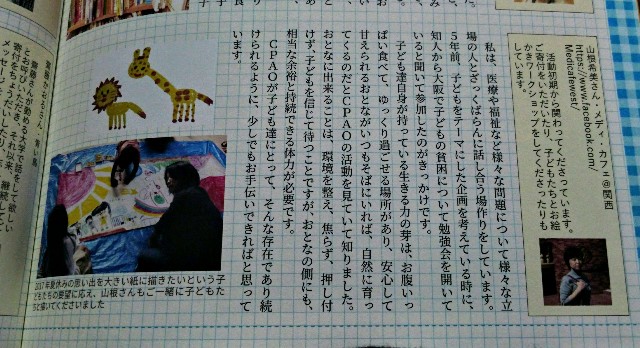 山根希美さん・メディ・カフェ＠関西
https://www.facebook.com/
Medicafewest/
活動初期から関わってくださっています。
ご寄付をいただいたり、子どもたちとお絵
かきワークショップをしてくださったりも
しています。
私は、医療や福祉など様々な問題について様々な立
場の人とざっくばらんに話し合う場作りをしています。
5年前、子どもをテーマにした企画を考えている時に、
知人から大阪で子どもの貧困について勉強会を開いて
いると聞いて参加したのがきっかけです。
子ども達自身が持っている生きる力の芽は、お腹いっ
ぱい食べて、ゆっくり過ごせる場所があり、安心して
甘えられるおとながいつもそばにいれば、自然に育っ
てくるのだとCPAOの活動を見ていて知りました。
おとなに出来ることは、環境を整え、焦らず、押し付
けず、子どもを信じて待つことですが、おとなの側にも、
相当な余裕と持続できる体力が必要です。
CPAOが子ども達にとって、そんな存在であり続
けられるように、少しでもお手伝いできればと思って
います。
2017年夏休みの思い出を大きい紙に描きたいという子
どもたちの要望に応え、山根さんもご一緒に子どもた
ちと描いてくださいました